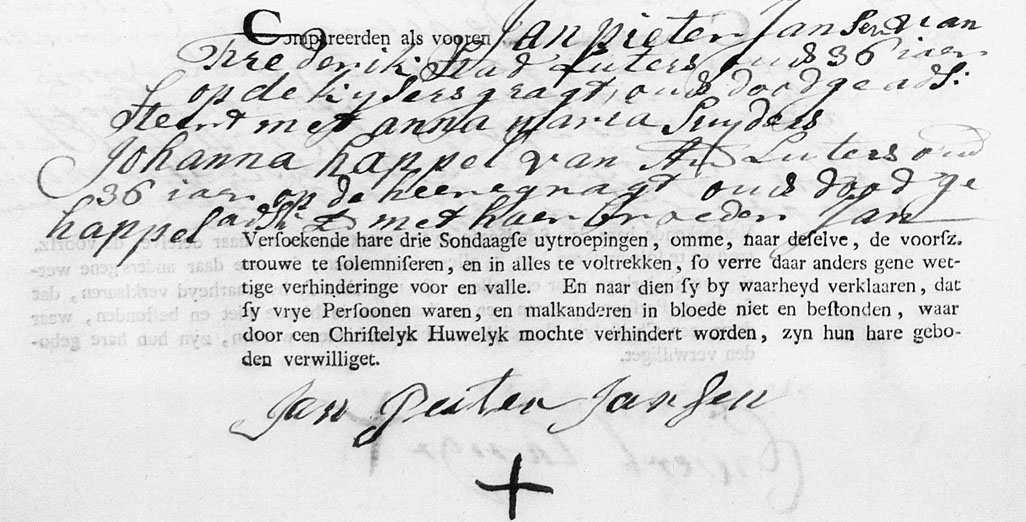 Compareerden als vooren Jan pieter Jansen van
Frederik Stad Luters oud 36 iaer
op de kysersgragt, ouds dood geads:
steert met anna maria Suyders
Johanna happel van A Luters oud
36 iaer op de heeregragt ouds dood ge
happel adst met haer broeder Jan
Versoekende hare drie Sondaagse uytroepingen, omme, naar deselve, de voorsz.
trouwe te solemniseren, en in alles te voltrekken, so verre daar anders gene wet-
tige verhinderinge voor en valle. En naar dien sy by waarheyd verklaaren, dat
sy vrye Persoonen waren, en malkanderen in bloede niet en bestonden, waar
door een Christelyk Huwelyk mochte verhindert worden, zyn hun hare gebo-
den verwilliget.
Jan Peeter Jansen